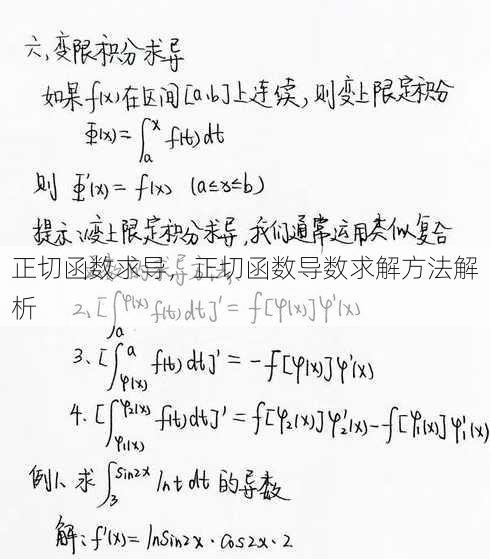 六、变限积分求导
如果f(x)在区间[a,b]上连续,则变上限定积分
Φ(x)=∫ₐˣ f(t)dt
则 Φ'(x)=f(x) (a≤x≤b)
提示:变上限定积分求导,我们通常运用类似复合
正切函数求导，正切函数导数求解方法解
析
2、[∫ₐ^φ(x) f(t)dt]'=f[φ(x)]φ'(x)
3、[∫_φ(x)^a f(t)dt]'=-f[φ(x)]φ'(x)
4、[∫_φ₁(x)^φ₂(x) f(t)dt]'=f[φ₂(x)]φ₂'(x)-f[φ₁(x)]φ₁'(x)
例1、求∫₃^sin2x lnt dt 的导数
解:f'(x)=lnsin2x·cos2x·2